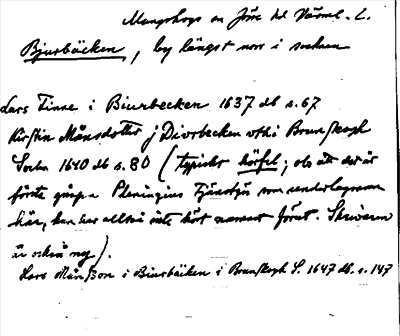 Mangskogs sn Jösse hd Värml. L.
Bjurbäcken, by längst norr i socknen
Lars Finne i Biurbecken 1637 db s. 67
Kirstin Månsdotter j Diorbecken vthi Brunskogh
Sochn 1640 db s. 80 (typiskt hörfel; obs att det är
första gången Tjänstgör som underlagman
här, han har alltså inte hört namnet förut. Skrivaren
är också ny).
Lars Månsson i Biurbäcken i Brunskogh S. 1647 db. s. 147